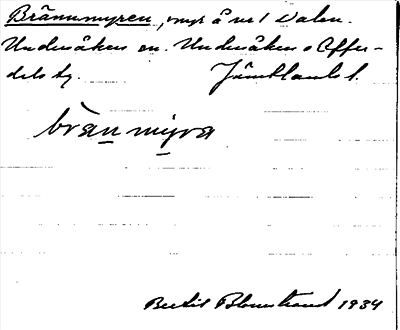 Brännmyren, myr å nr 1 Dalen.
Undersåkers sn. Undersåkers o Offer-
dals tg. Jämtlands l.
brạnmyra
Bertil Blomstrand 1934